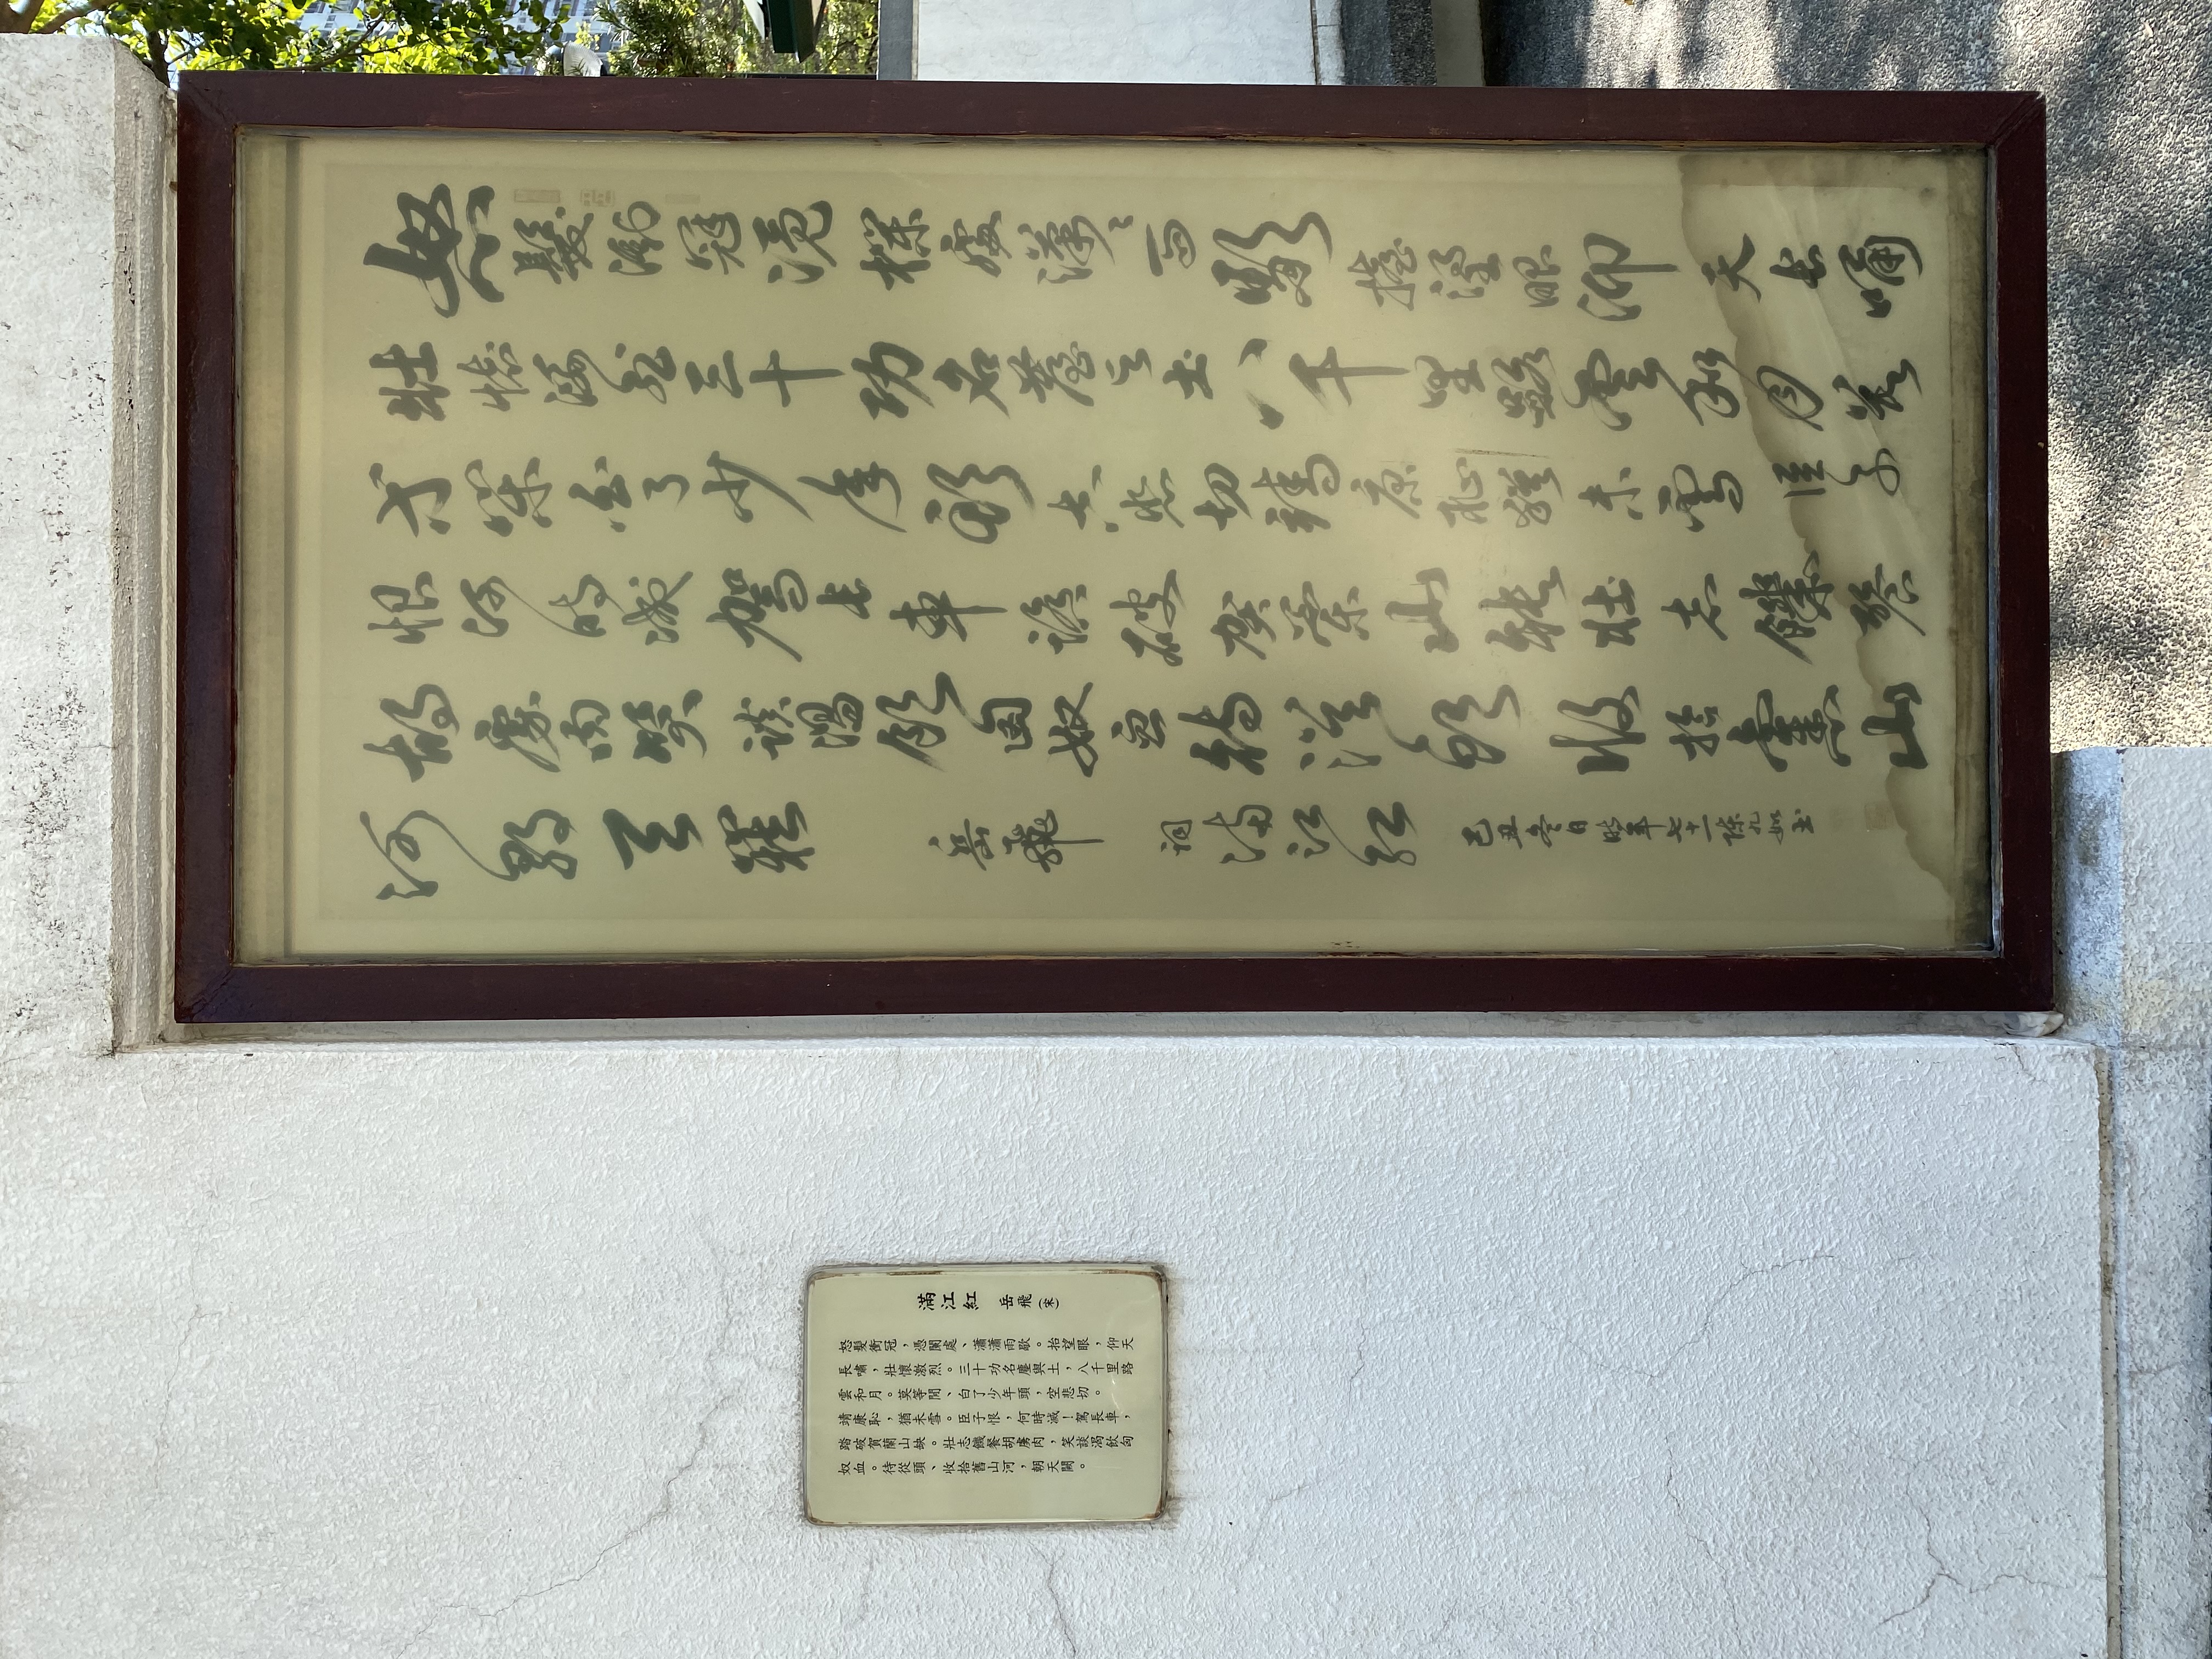 怒髮衝冠憑欄處瀟瀟雨歇擡望眼仰天長嘯
壯懷激烈三十功名塵與土八千里路雲和月莫
等閒白了少年頭空悲切靖康恥猶未雪臣子
恨何時滅駕長車踏破賀蘭山缺壯志饑餐
胡虜肉笑談渴飲匈奴血待從頭收拾舊山
河朝天闕 岳飛 詞滿江紅 己丑冬日時年七十一陳九如書
滿江紅 岳飛(宋)
怒髮衝冠，憑闌處、瀟瀟雨歇。抬望眼，仰天
長嘯，壯懷激烈。三十功名塵與土，八千里路
雲和月。莫等閒、白了少年頭，空悲切。
靖康恥，猶未雪。臣子恨，何時滅！駕長車，
踏破賀蘭山缺。壯志饑餐胡虜肉，笑談渴飲匈
奴血。待從頭、收拾舊山河，朝天闕。